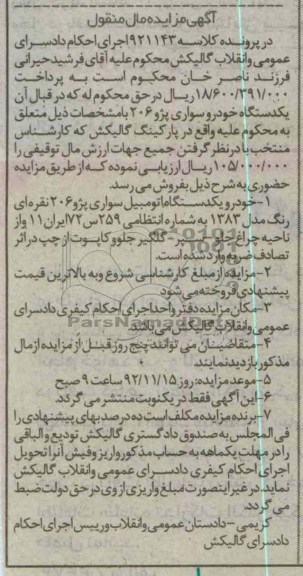 آگهی مزایده مال منقول
در پرونده کلاسه ۹۲۱۱۴۳ اجرای احکام دادسرای
عمومی وانقلاب گالیکش محکوم علیه آقای فرشید حیرانی
فرزند ناصر خان محکوم است به پرداخت
۱۸/۶۰۰/۳۹۱/۰۰۰ ریال در حق محکوم له که در قبال آن
یکدستگاه خودرو سواری پژو ۲۰۶ بامشخصات ذیل متعلق
به محکوم علیه واقع در پارکینگ گالیکش که کارشناس
منتخب با در نظر گرفتن جمیع جهات ارزش مال توقیفی را
۱۰۵/۰۰۰/۰۰۰ ریال ارزیابی نموده که از طریق مزایده
حضوری به شرح ذیل بفروش می رسد.
۱-خودرو یکدستگاه اتومبیل سواری پژو ۲۰۶ نقره ای
رنگ مدل ۱۳۸۳ به شماره انتظامی ۲۵۹س۷۲ ایران ۱۱ و از
ناحیه چراغ سپر- گلگیر جلو و کاپوت از چپ در اثر
تصادف ضربه وارد شده است.
۲-مزایده از مبلغ کارشناسی شروع و به بالاترین قیمت
پیشنهادی فروخته می شود
۳-مکان مزایده دفتر واحد اجرای احکام کیفری دادسرای
عمومی وانقلاب گالیکش می باشد.
۴-متقاضیان می توانند پنج روز قبل از مزایده از مال
مذکور بازدید نمایند.
۵-موعد مزایده: روز ۹۲/۱۱/۱۵ ساعت ۹ صبح
۶-این آگهی فقط در یک نوبت منتشر می گردد.
۷-برنده مزایده مکلف است ده درصد بهای پیشنهادی را
فی المجلس به صندوق دادگستری گالیکش تودیع و الباقی
را در مهلت یکماهه به حساب مذکور واریز و فیش آنرا تحویل
اجرای احکام کیفری دادسرای عمومی وانقلاب گالیکش
نماید. در غیر اینصورت مبلغ واریزی از وی در حق دولت ضبط
می گردد.
کریمی - دادستان عمومی وانقلاب و رییس اجرای احکام
دادسرای گالیکش